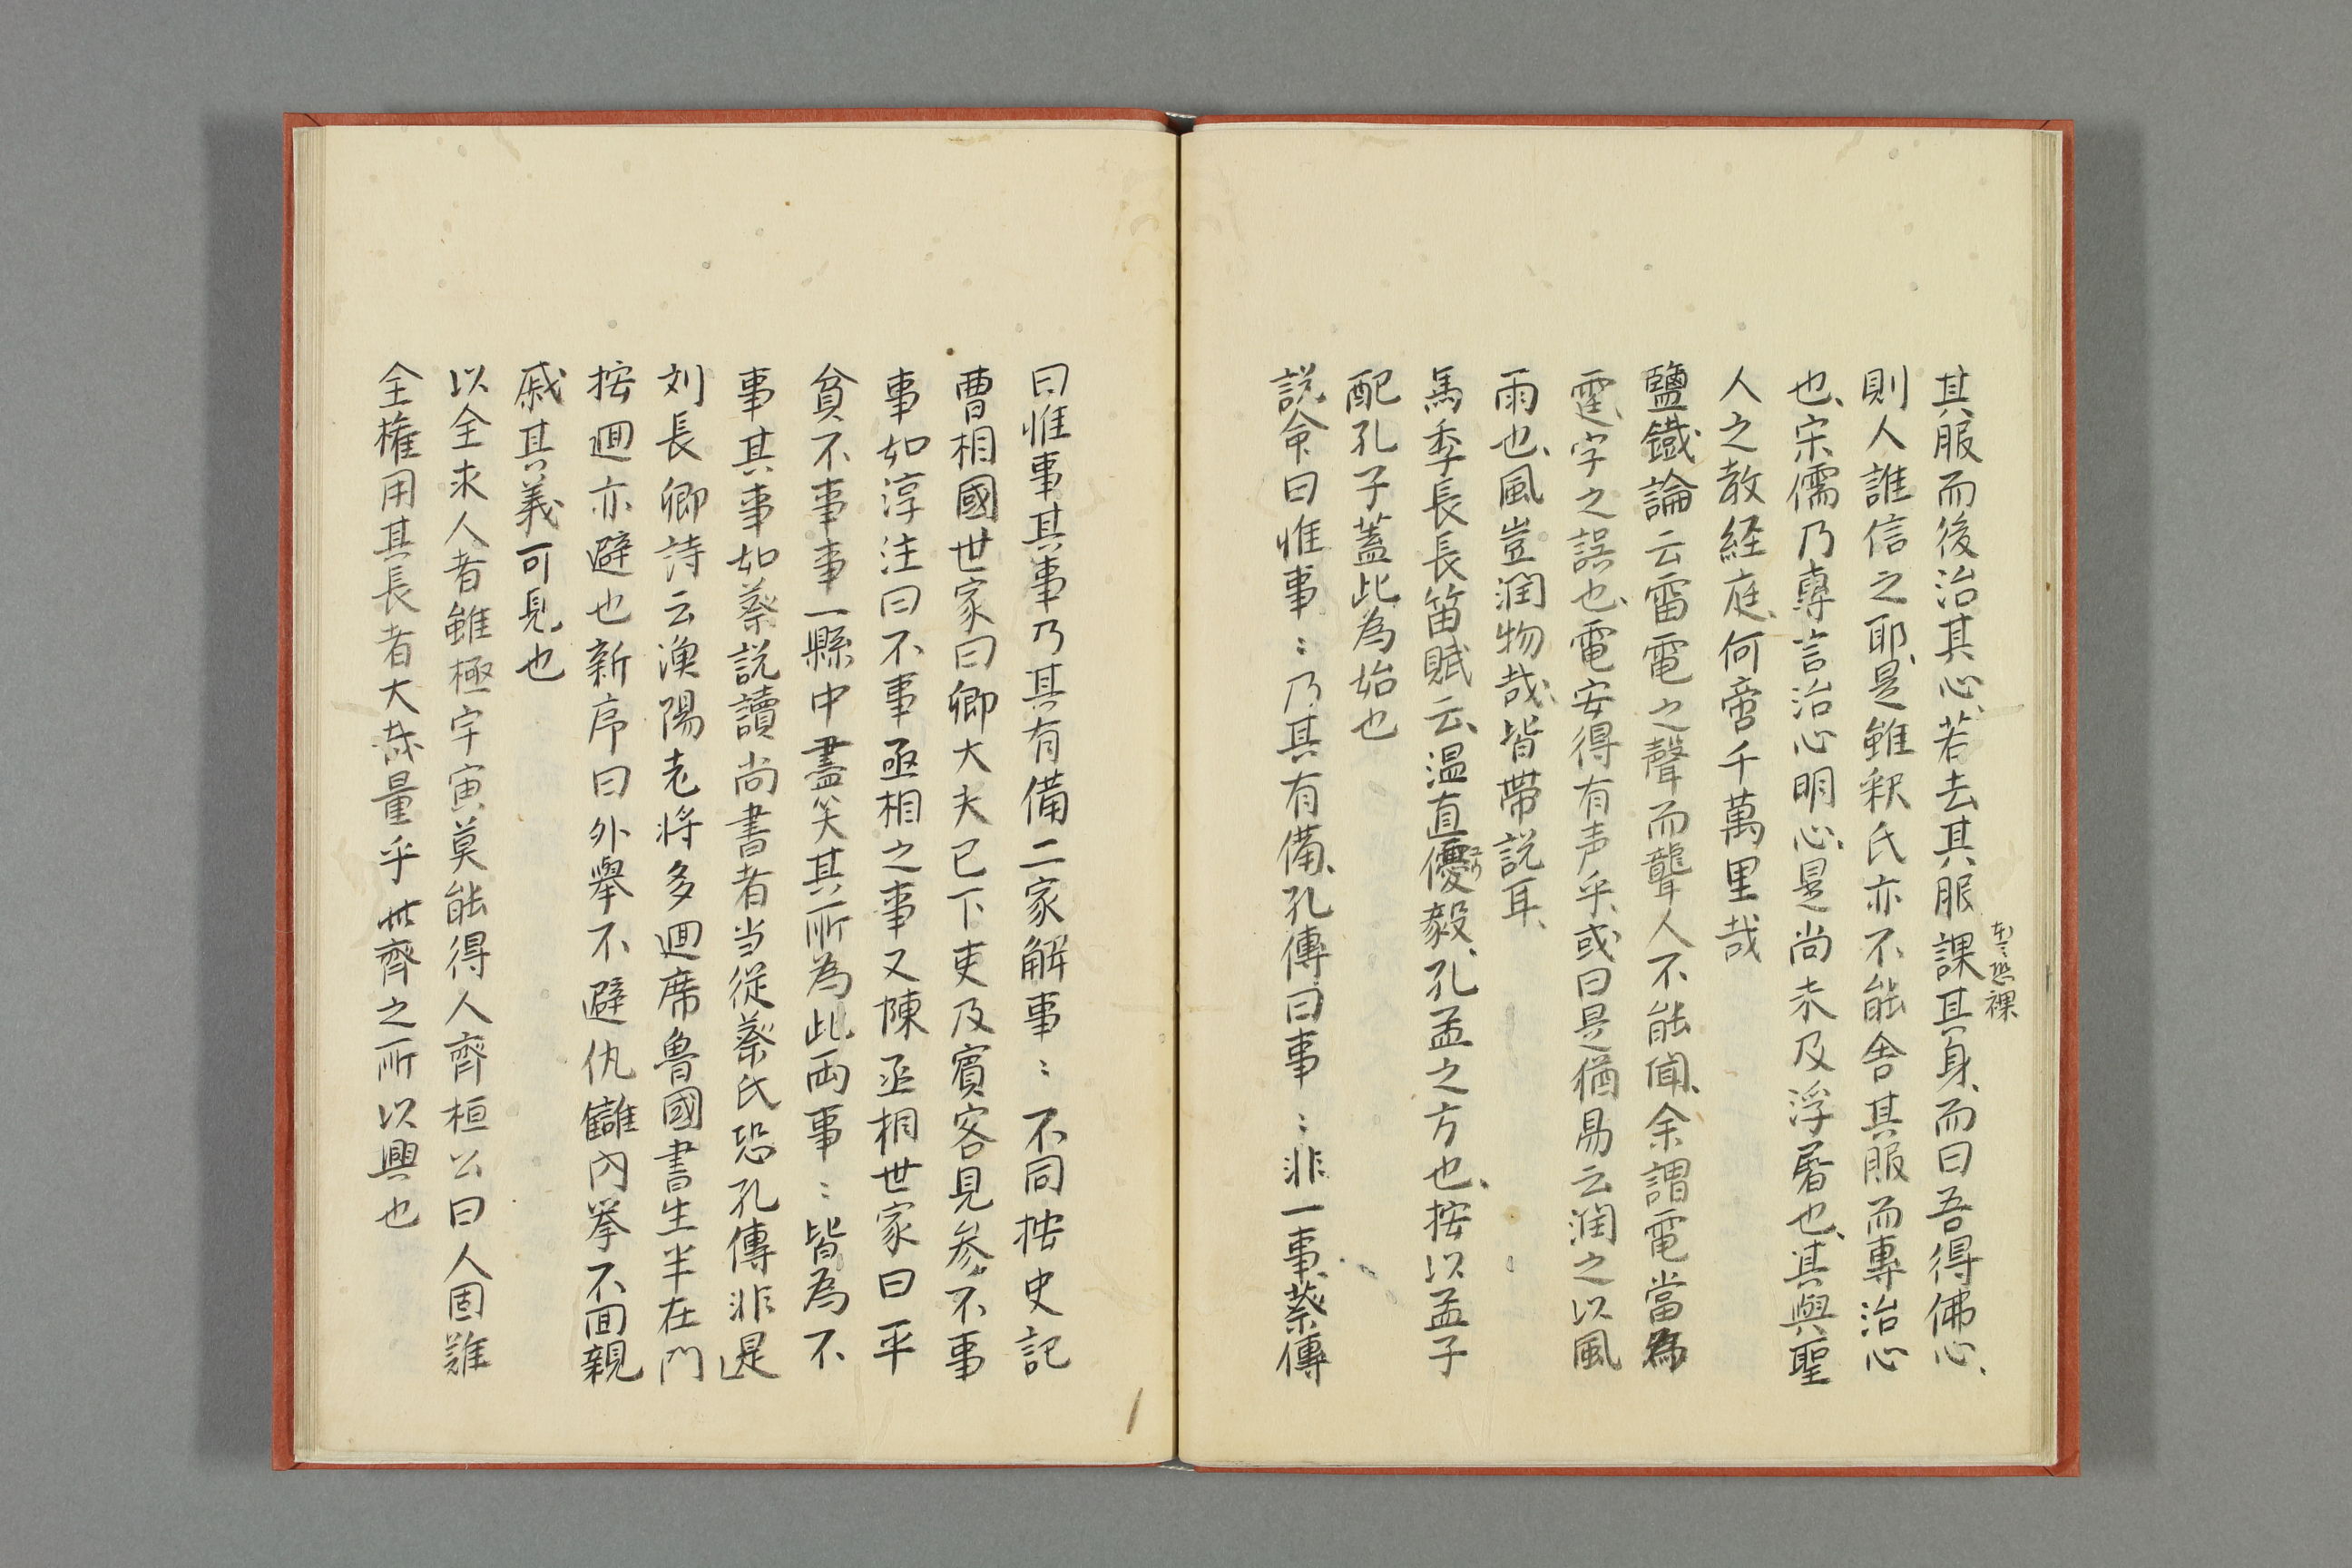 其服而後治其心、若去其服課其身、而曰吾得佛心、
東云恐裸
則人誰信之耶、是雖釈氏亦不能舍其服而專治心
也、宋儒乃專言治心明心、是尚未及浮屠也、其與聖
人之教経庭、何啻千萬里哉
鹽鐵論云雷電之聲而聾人不能聞、余謂電當為
霆、字之誤也、電安得有声乎、或曰是猶易云潤之以風
雨也、風豈潤物哉、皆帶説耳、
馬季長長笛賦云、温直優毅、孔孟之方也、按以孟子
配孔子蓋此為始也
説命曰惟事〻乃其有備、孔傳曰事〻非一事、蔡傳
曰惟事其事乃其有備二家解事〻不同按史記
曹相國世家曰卿大夫已下吏及賓客見参不事
事如淳注曰不事亟相之事又陳丞相世家曰平
貧不事事一縣中盡笑其所為此両事〻皆為不
事其事如蔡説讀尚書者当従蔡氏恐孔傳非是
刘長卿詩云漁陽老将多迴席魯國書生半在門
按迴亦避也新序曰外擧不避仇讎内挙不回親
戚其義可見也
以全求人者雖極宇宙莫能得人齊桓公曰人固難
全権用其長者大哉量乎此齊之所以興也